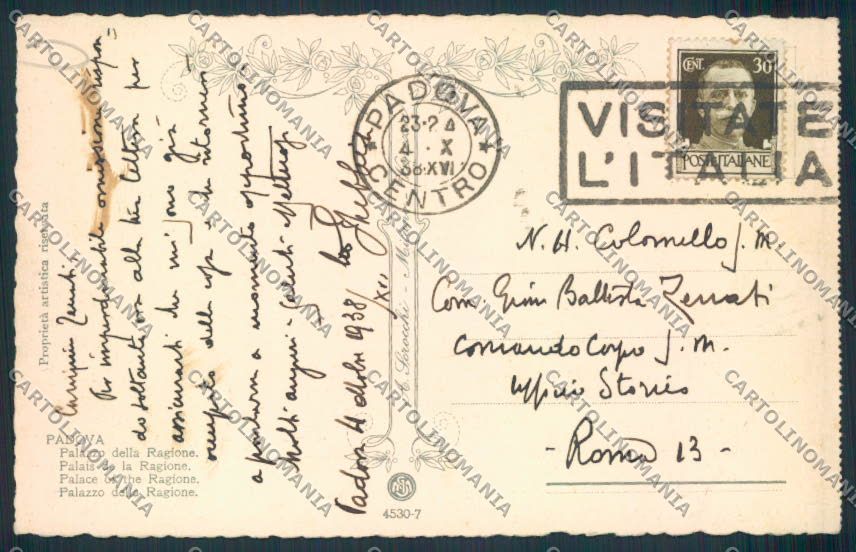 PADOVA
CENTRO
23-24
4 · X
38·XVI
VISITATE
L'ITALIA
CENT. 30
POSTE ITALIANE
Per imperdonabile omissione rispon=
do soltanto ora alla tua lettera per
assicurarti che mi sono già
occupato della cosa e che ritornerò
a parlarne a momento opportuno.
Molti auguri e saluti
Padova 4 ottobre 1938/XVI
N. H. Colonnello S. M.
Com. Battista
Comando Corpo S. M.
Ufficio Storico
- Roma 13 -
Proprietà artistica riservata
PADOVA
Palazzo della Ragione.
Palais de la Ragione.
Palace of the Ragione.
Palazzo della Ragione.
4530-7
CARTOLINOMANIA